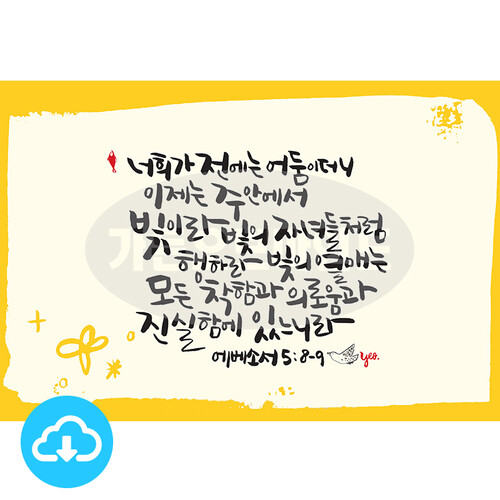 너희가 전에는 어둠이더니
이제는 주안에서
빛이라 빛의 자녀들처럼
행하라 빛의 열매는
모든 착함과 의로움과
진실함에 있느니라
에베소서 5:8-9 yeo.